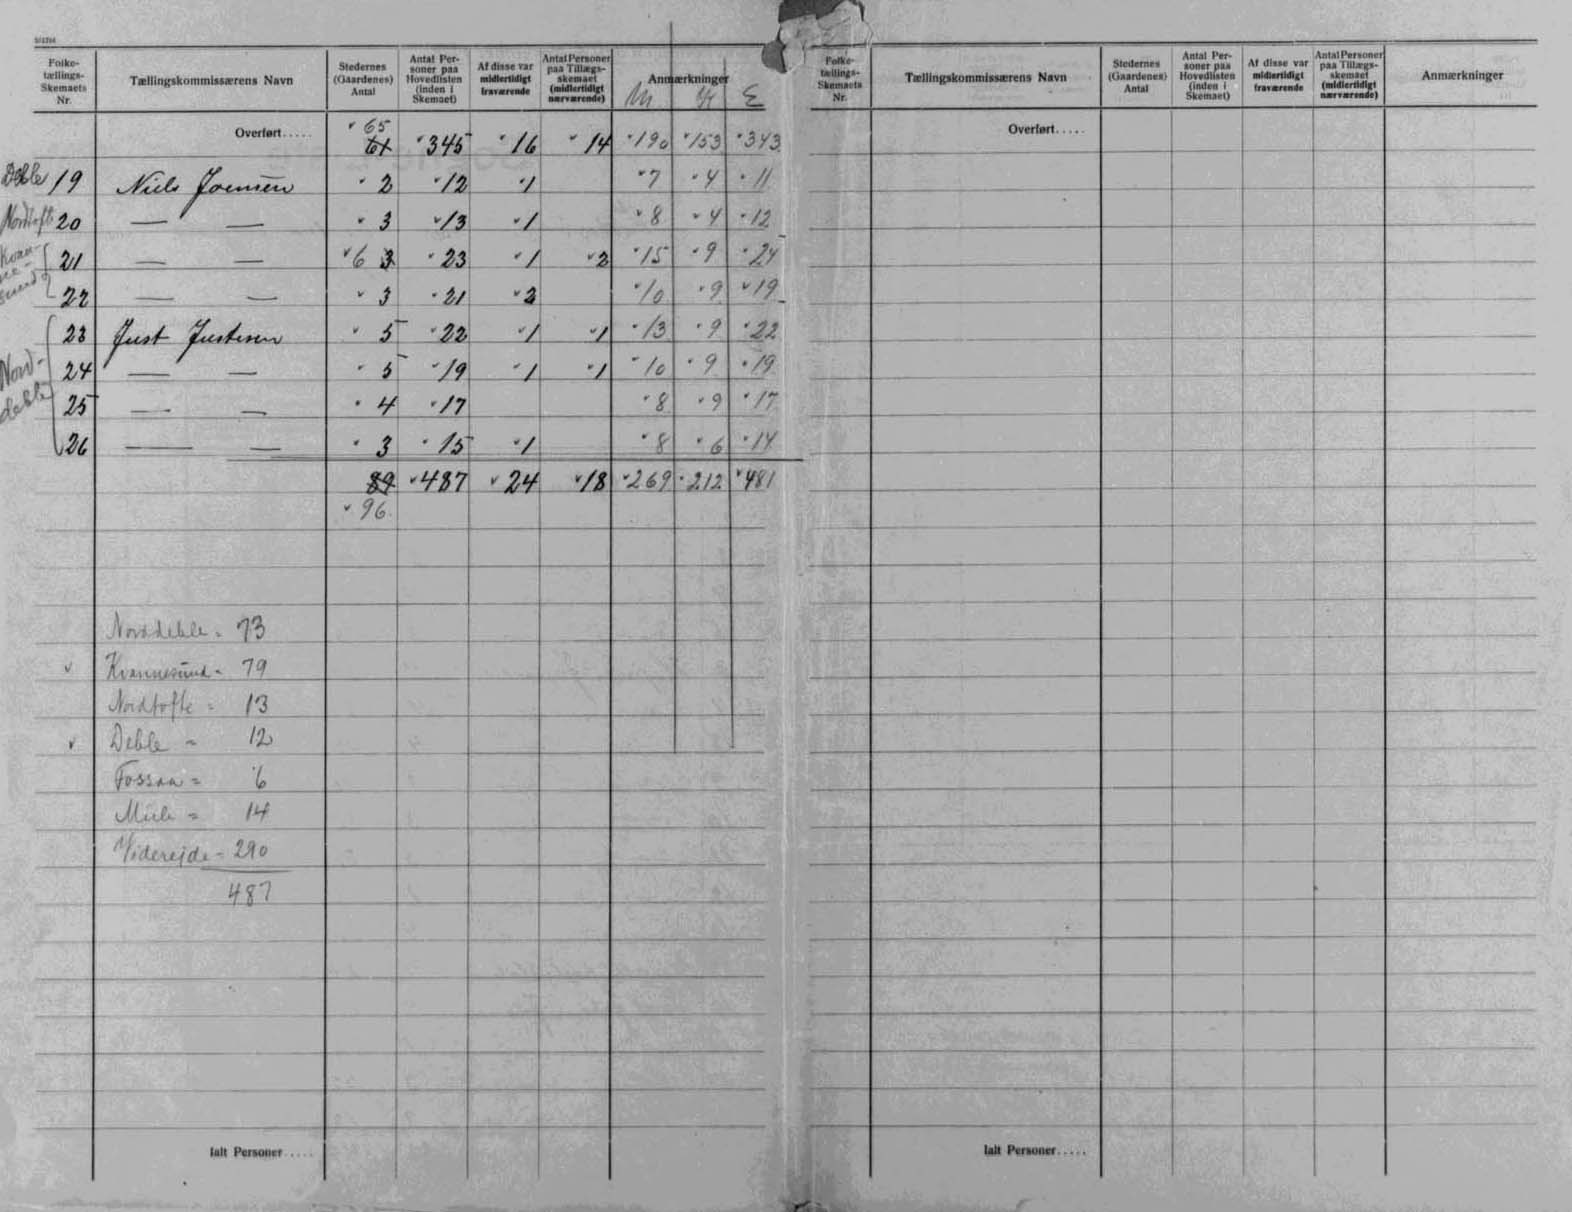 Folke-tællings-Skemaets Nr. Tællingskommissærens Navn Stedernes (Gaardenes) Antal Antal Personer paa Hovedlisten (inden i Skemaet) Af disse var midlertidigt fraværende Antal Personer paa Tillægs-skemaet (midlertidigt nærværende) Anmærkninger
M K Σ
Overført..... 65 61 345 16 14 190 153 343
Deble 19 Niels Joensen 2 12 1 7 4 11
Nordtofte 20 — — 3 13 1 8 4 12
Kvan-ne-sund 21 — — 6 3 23 1 2 15 9 24
22 — — 3 21 2 10 9 19
Nord-deble 23 Just Justesen 5 22 1 1 13 9 22
24 — — 5 19 1 1 10 9 19
25 — — 4 17 8 9 17
26 — — 3 15 1 8 6 14
89 487 24 18 269 212 481
96
Norddeble = 73
Kvannesund = 79
Nordtofte = 13
Deble = 12
Fossaa = 6
Mule = 14
Viderejde = 290
487
Ialt Personer.....
Folke-tællings-Skemaets Nr. Tællingskommissærens Navn Stedernes (Gaardenes) Antal Antal Personer paa Hovedlisten (inden i Skemaet) Af disse var midlertidigt fraværende Antal Personer paa Tillægs-skemaet (midlertidigt nærværende) Anmærkninger
Overført.....
Ialt Personer.....